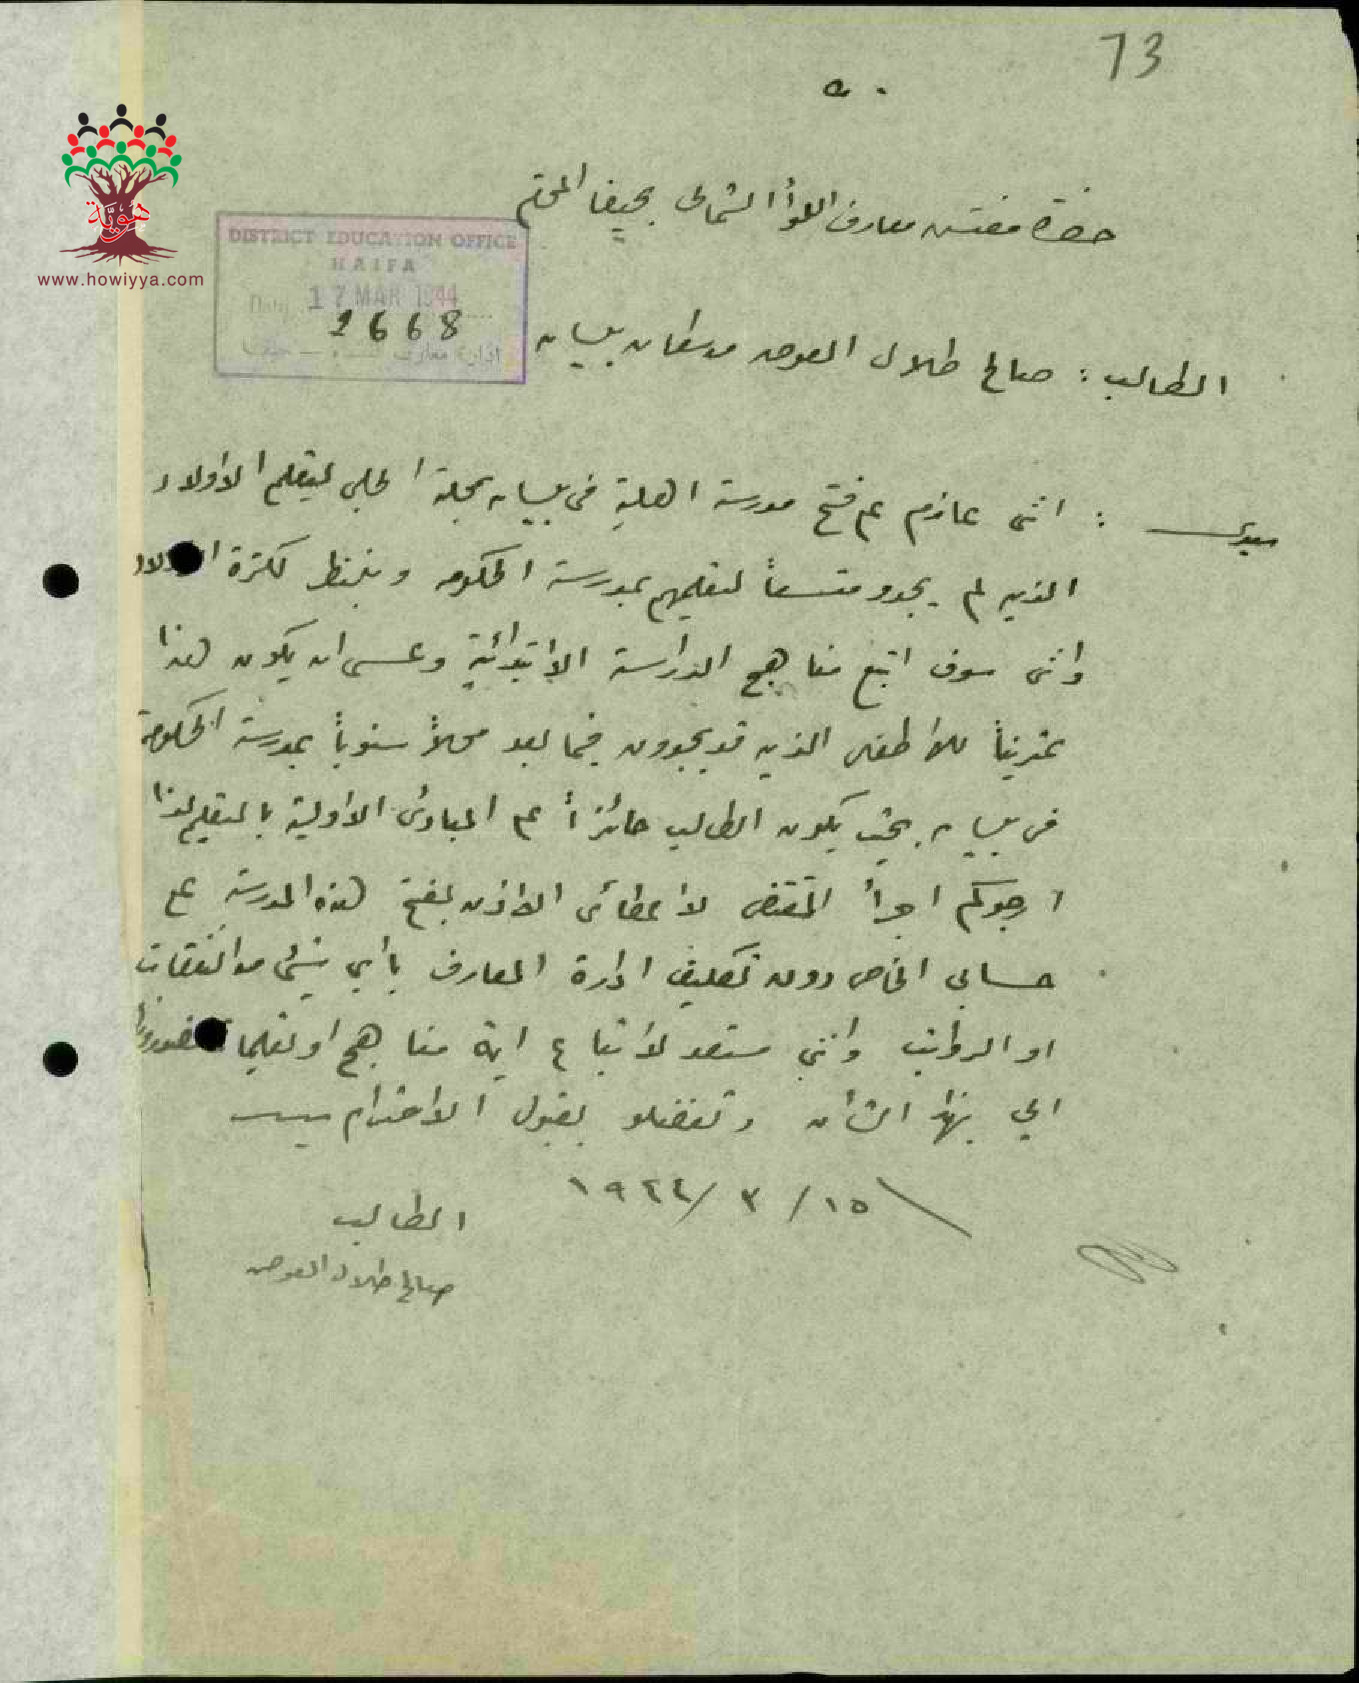 73
هوية
www.howiyya.com
حضرة مفتش معارف اللوأ الشمالي بحيفا المحترم
DISTRICT EDUCATION OFFICE
HAIFA
Date 17 MAR 1944
2668
ادارة معارف حيفا
الطالب : صالح طلال العوض من سكان بيسان
سيدي : انني عازم على فتح مدرسة اهلية في بيسان بمحلة الحلبي ليتعلم الاولاد
الذين لم يجدو متسعاً لتعليمهم بمدرسة الحكومه وبالنظر لكثرة الاولاد
وانني سوف اتبع مناهج الدراسة الابتدائية وعسى ان يكون هذا
تمريناً للاطفال الذين قد يجدون فيما بعد محلاً سنوياً بمدرسة الحكومة
في بيسان بحيث يكون الطالب حائزاً على المبادئ الاولية بالتعليم لذا
ارجوكم اجرأ المقتضى لاعطائي الاذن بفتح هذه المدرسة على
حسابي الخاص دون تكليف ادارة المعارف باي شئ من النفقات
او الرواتب وانني مستعد لاتباع اية مناهج او تعليمات
الي بهذا الشأن وتفضلو بقبول الاحترام سيدي
١٥/ ٣ /١٩٤٤
الطالب
صالح طلال العوض